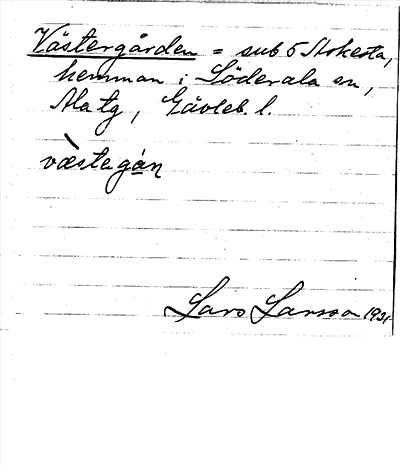 Västergården = sub 5 Arkesta,
hemman i Söderala sn,
Ala tg, Gävleb. l.
væ̀stegán
Lars Larsson 1931